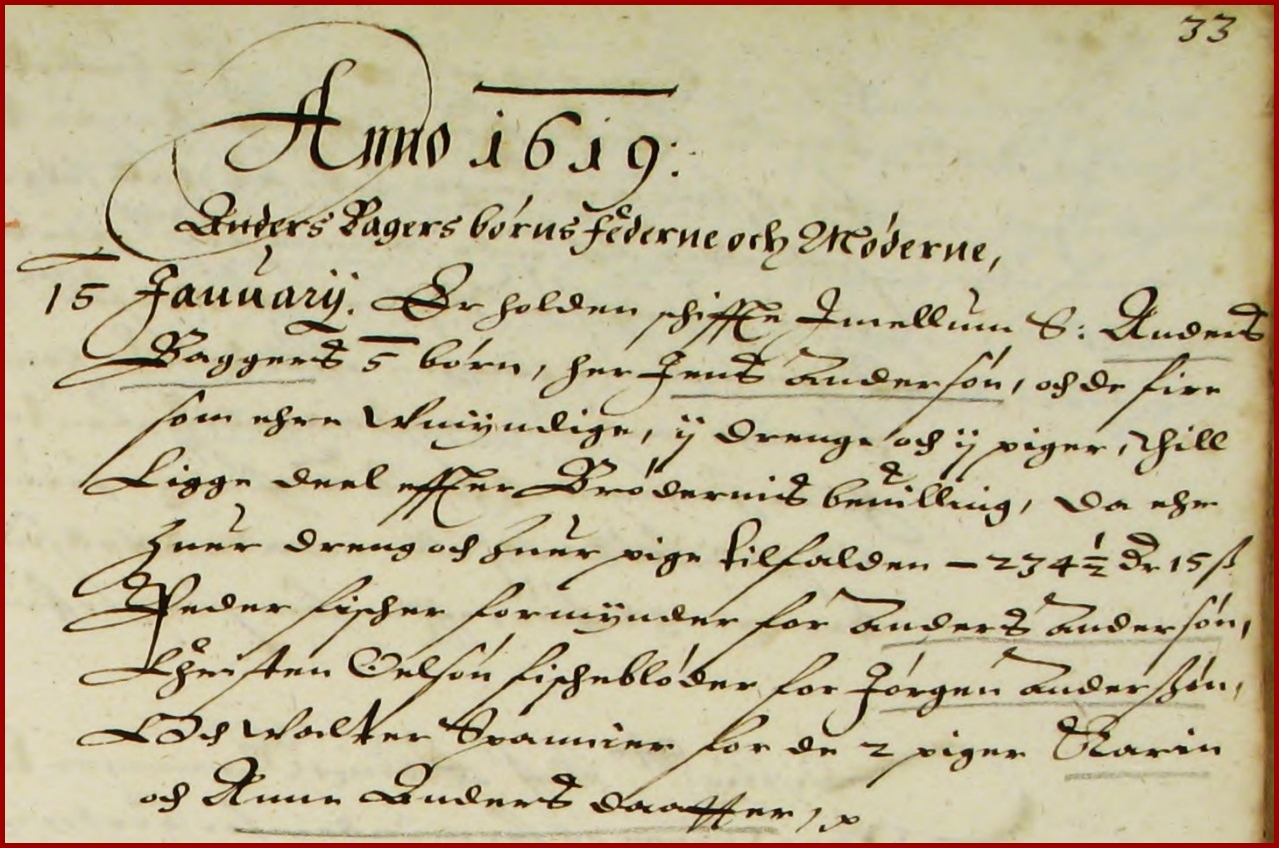 33
Anno 1619:
Anders Bagers børns federne och Møderne,
15 January. Er holden schiffte Imellum S: Anders
Baggers 5 børn, her Jens Andersøn, och de fire
som ehre Wmyndige, ij drenge och ij piger, thill
Ligge deel effter Brødernis beuilling, da ehr
huer dreng och huer pige tilfalden – 234½ dr 15 ß
Peder fischer formynder for Anders Andersøn,
Christen Oelsøn fischebløder for Jørgen Anderßøn,
Och Walter Spannier for de 2 piger Karin
och Anne Anders daatter,